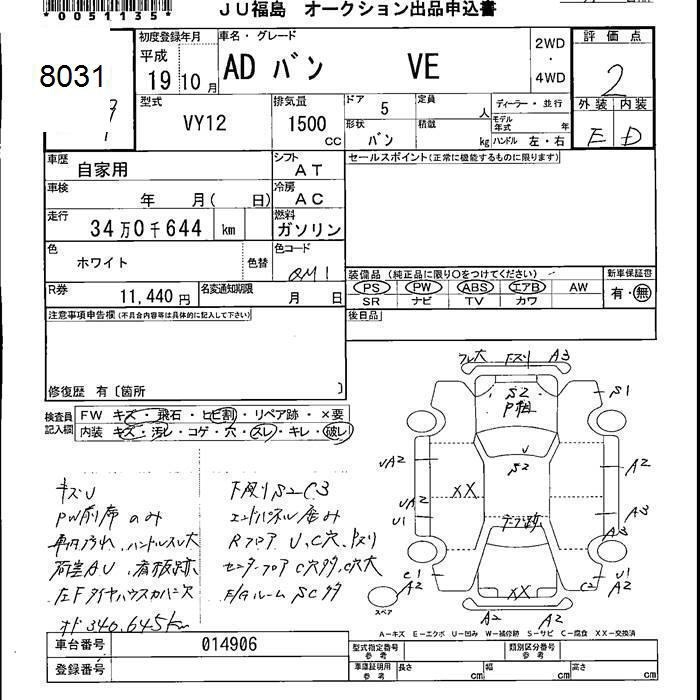 *0051135*
JU福島 オークション出品申込書
8031
初度登録年月
平成
19 10月
車名・グレード
AD バン VE
2WD
・
4WD
評価点
2
外装 内装
E D
型式
VY12
排気量
1500
cc
ドア 5
定員
人
形状
バン
積載
kg
ディーラー・並行
モデル年式 年
ハンドル 左・右
車歴
自家用
シフト
AT
車検
年 月( 日)
冷房
AC
走行
34万0千644 km
燃料
ガソリン
色
ホワイト
色替
色コード
QM1
R券
11,440円
名変通知期限
月 日
セールスポイント(正常に機能するものに限ります)
装備品(純正品に限り○をつけてください)
PS PW ABS エアB AW
SR ナビ TV カワ
新車保証書
有・無
後日品
注意事項申告欄(不具合内容等は具体的に記入して下さい)
修復歴 有〔箇所 〕
検査員
記入欄
FW キズ・飛石・ヒビ割・リペア跡・×要
内装 キズ・汚レ・コゲ・穴・スレ・キレ・破レ
キズU
PW前席のみ
車内汚れ、ハンドルスレ大
荷室AU、看板跡
左Fタイヤハウスカバー欠
オド340,645km
下廻りS2C3
エンドパネル歪み
RフロアU、C穴、
センターフロアC穴多、C穴大
E/GルームSC多
フレ大 A3
S2
P粗
S1
U
S2
UA2
UA2
U1
XX
A2
A3
A3
C1
A2
C2
U1
A2
XX
A2
A2
スペア
A-キズ E-エクボ U-凹み W-補修跡 S-サビ C-腐食 XX-交換済
車台番号 014906
登録番号
型式指定番号
参考
類別区分番号
参考
車庫証明用
参考
長さ cm
幅 cm
高さ cm